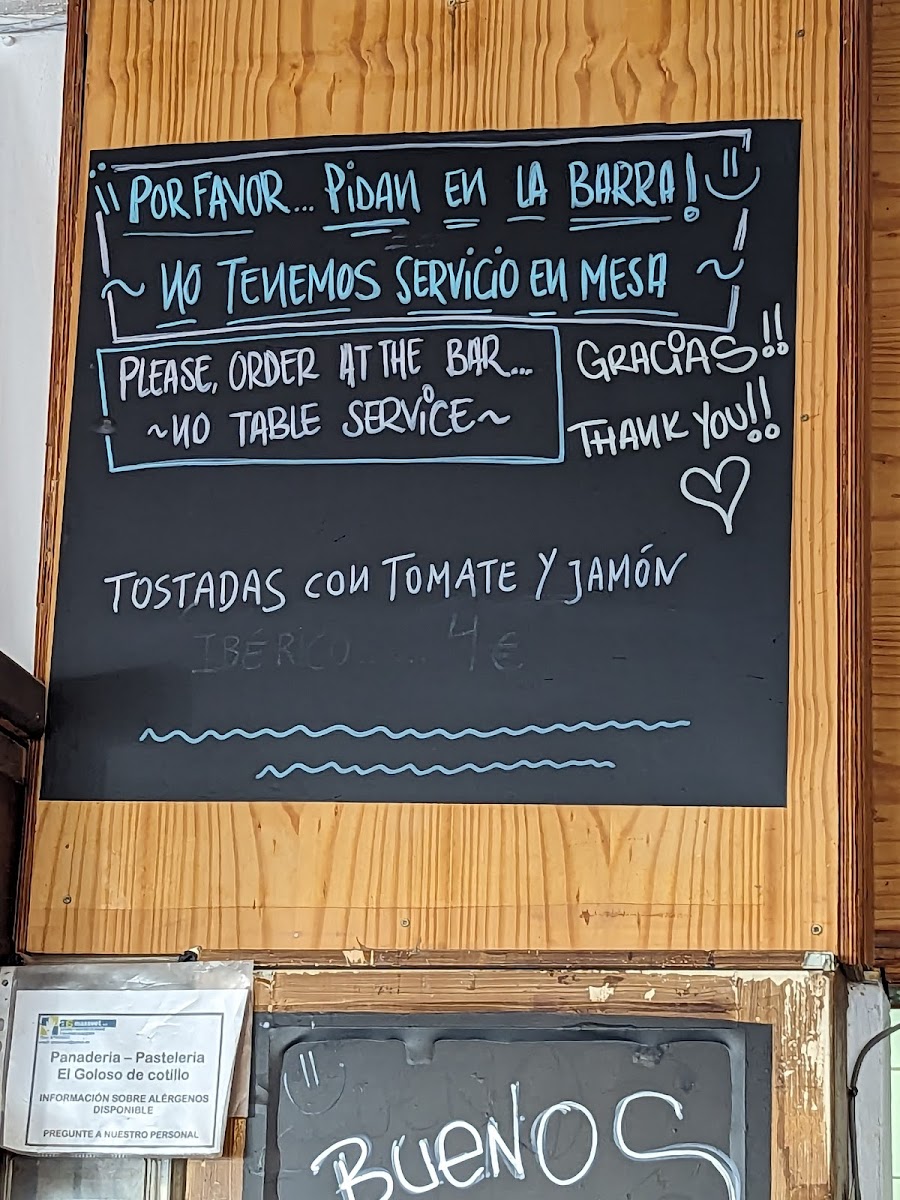 ¡¡ POR FAVOR... PIDAN EN LA BARRA!
~ NO TENEMOS SERVICIO EN MESA ~
PLEASE, ORDER AT THE BAR...
~NO TABLE SERVICE~
GRACIAS!!
THANK YOU!!
TOSTADAS CON TOMATE Y JAMÓN
IBÉRICO...... 4€
Panadería – Pastelería
El Goloso de cotillo
INFORMACIÓN SOBRE ALÉRGENOS
DISPONIBLE
PREGUNTE A NUESTRO PERSONAL
BUENOS